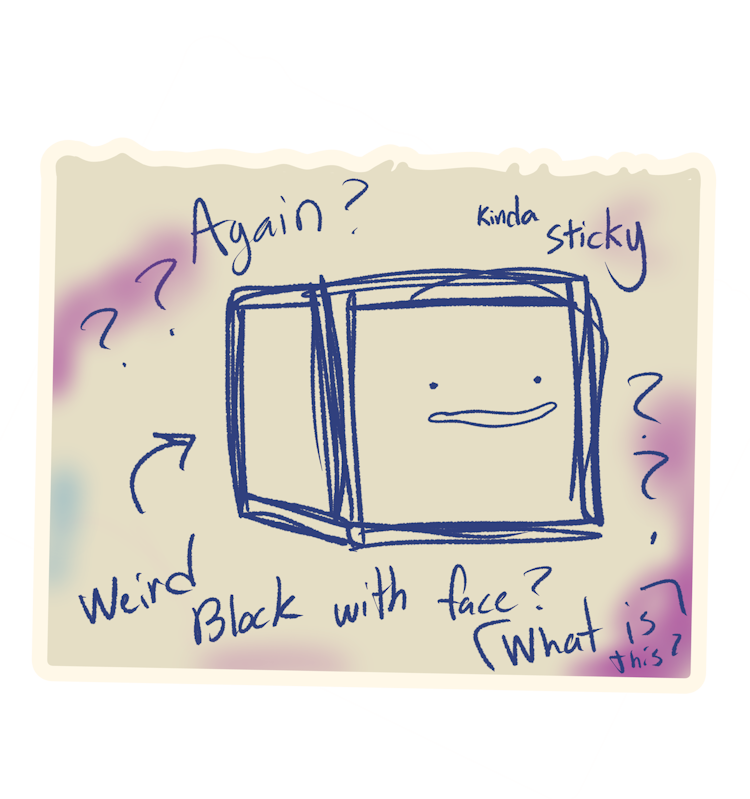 Again?
Kinda sticky
? ?
?
?
Weird
Block with face?
What is
this?